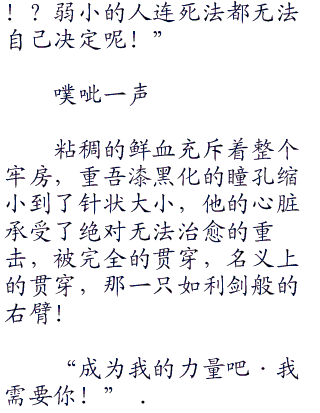 ！？弱小的人连死法都无法
自己决定呢！”
噗呲一声
粘稠的鲜血充斥着整个
牢房，重吾漆黑化的瞳孔缩
小到了针状大小，他的心脏
承受了绝对无法治愈的重
击，被完全的贯穿，名义上
的贯穿，那一只如利剑般的
右臂！
“成为我的力量吧·我
需要你！” ．